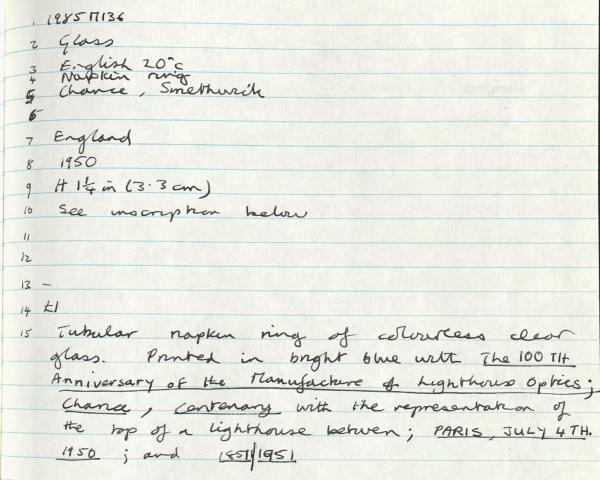 1 1985M136
2 Glass
3 English 20°c
4 Napkin ring
5 Chance, Smethwick
6
7 England
8 1950
9 H 1¼ in (3.3 cm)
10 See inscription below
11
12
13 -
14 £1
15 Tubular napkin ring of colourless clear
glass. Printed in bright blue with The 100TH
Anniversary of the Manufacture of Lighthouse Optics;
Chance, Centenary with the representation of
the top of a lighthouse between; PARIS, JULY 4TH.
1950; and 1851/1951